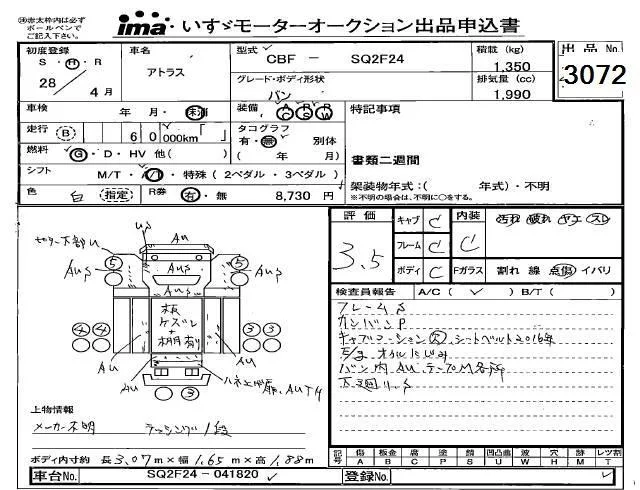 ㊟赤太枠内は必ず
ボールペンで
ご記入下さい。
ima いすゞモーターオークション出品申込書
初度登録 車名 型式 積載 (kg) 出品No.
S・H・R アトラス CBF － SQ2F24 1,350 3072
28 4月 グレード・ボディ形状 排気量 (cc)
バン 1,990
車検 年 月・抹消 装備 A P R 特記事項
C S W
走行 B 60 000km「 」 タコグラフ
有・無 別体
燃料 G・D・HV 他( ) ( 年 月) 書類二週間
シフト M/T・A/T・特殊(2ペダル・3ペダル) 架装物年式:( 年式)・不明
色 白 (指定) R券 有・無 8,730 円 ※不明の場合は、不明に○をする。
評価 キャブ C 内装 汚れ 破れ ヤケ スレ
3.5 フレーム C C
ボディ C Fガラス 割れ 線 点傷 イバリ
us Au
5 AuS 5
AuS AuS
板
ケズレ
+
棚有
4 4 3 3
Au Au
Au
3
検査員報告 A/C( ✓ ) B/T( )
フレームS
カンバンP
キャブコーション欠 シートベルト2016年
オイルにじみ
バン内 AU テープM各所
下廻りS
上物情報
メーカー不明 ラッシング1段
ボディ内寸約 長3.07m×幅1.65m×高1.88m
記号 傷 板金 腐 塗 錆 凹凸曲 波 穴 跡 レツ割
A B C P S U W H M T
車台No. SQ2F24-041820 登録No.